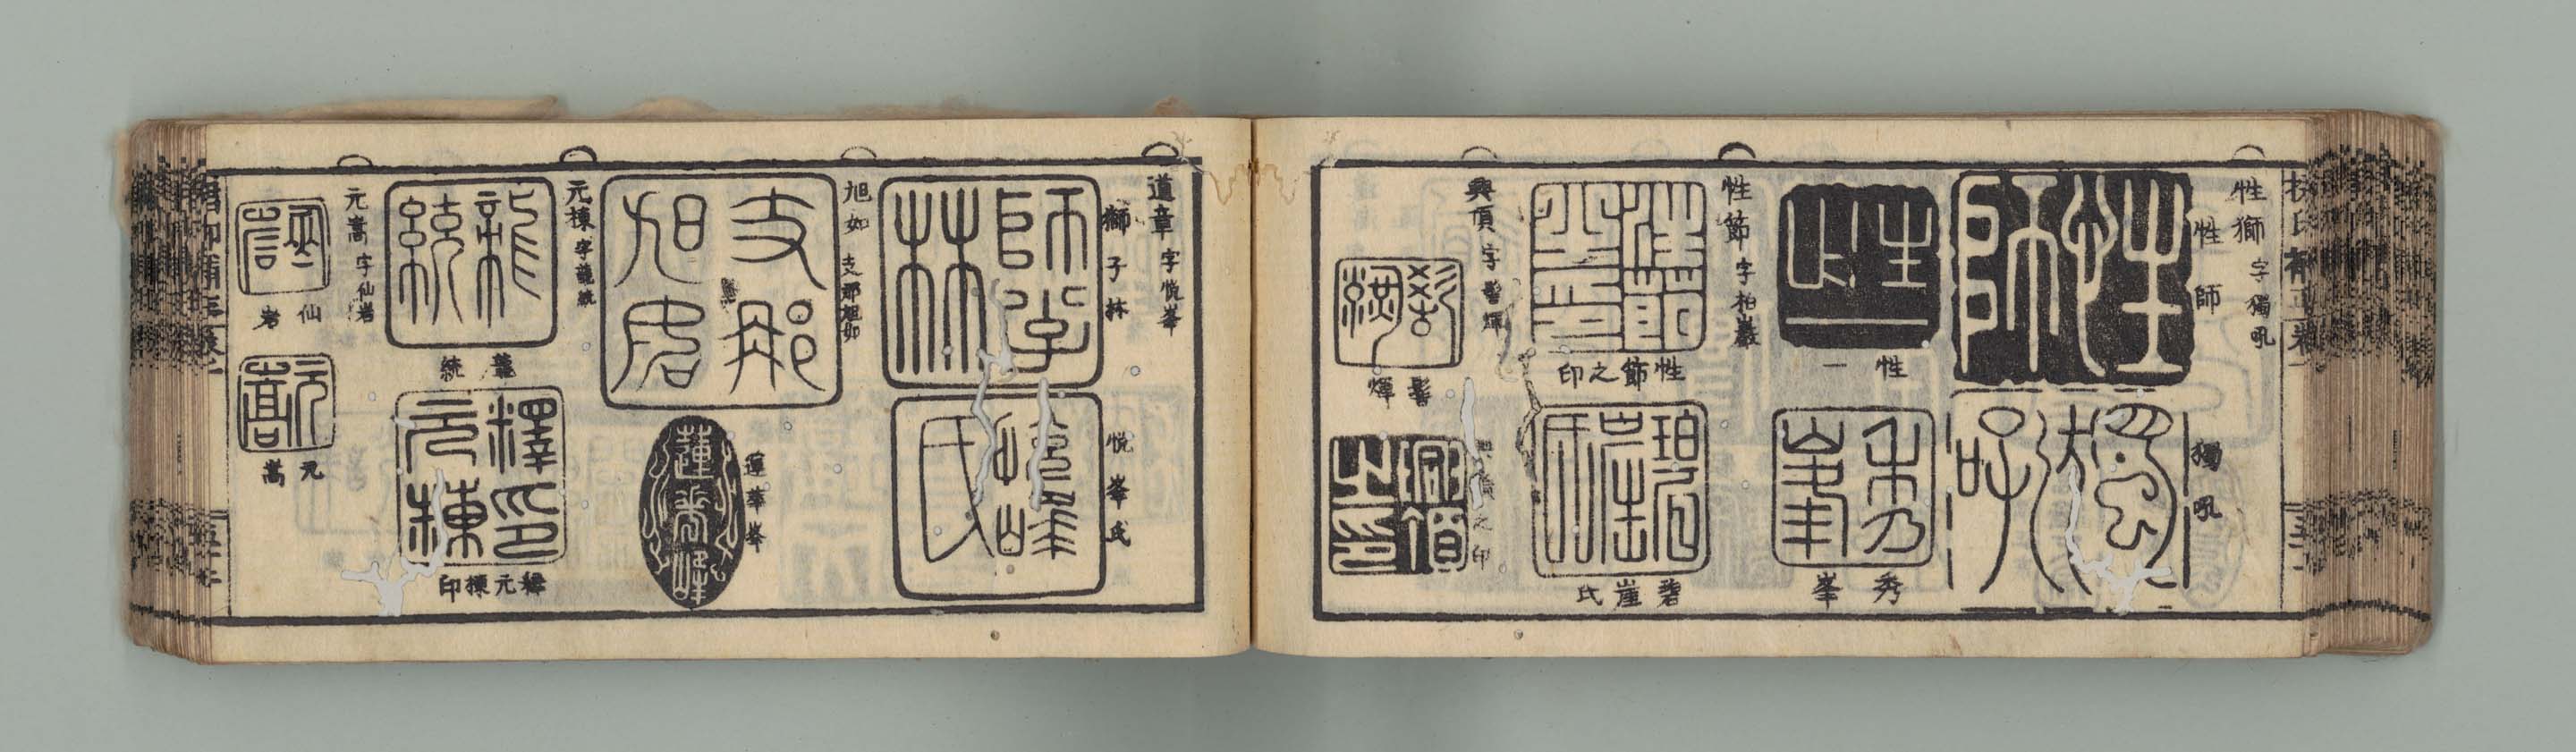 性獅 字獨吼
性師
獨吼
性一
秀峯
性節 字柏巖
性節之印
碧崖氏
興頂 字髻輝
髻輝
之印
道章 字悅峯
獅子林
悅峯氏
旭如 支那旭如
蓮華峯
元棟 字龍統
龍統
釋元棟印
元嵩 字仙岩
仙岩
元嵩